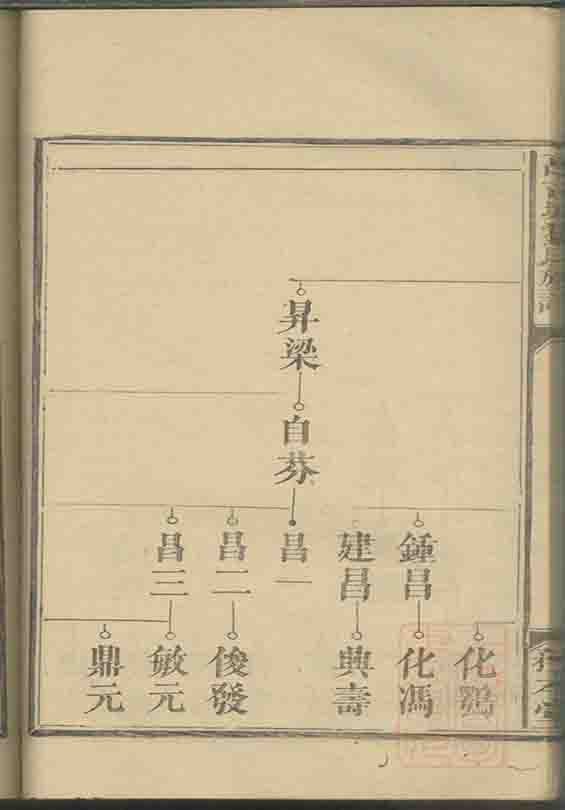 昇梁
自芬
鍾昌
建昌
昌一
昌二
昌三
化鵶
化馮
典壽
俊發
敏元
鼎元